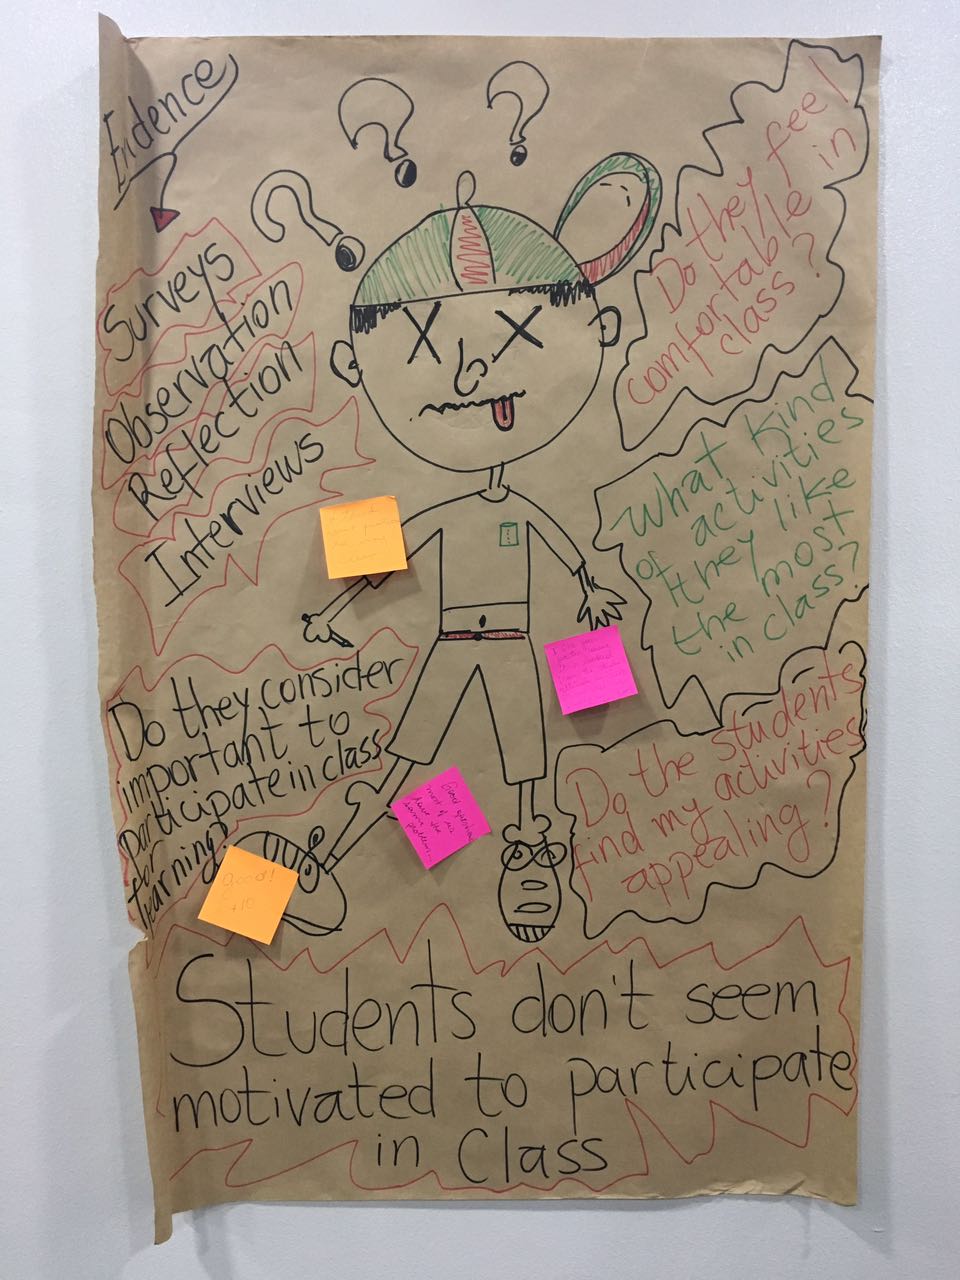 Evidence
Surveys
Observation
Reflection
Interviews
Do they feel
comfortable in
class?
What kind
of activities
they like
the most
in class?
Do they consider
important to
participate in class
for
learning?
Do the students
find my activities
appealing?
Good question
most of us
have the
same
problem
good!
+10
Students don't seem
motivated to participate
in Class